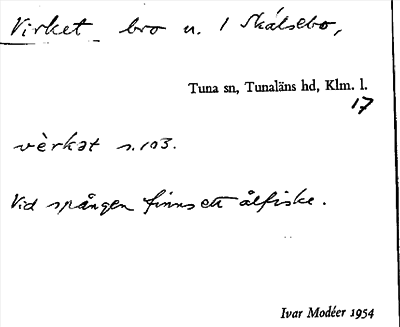 Virket bro n. 1 Skälsebo,
Tuna sn, Tunaläns hd, Klm. l.
17
vèrkət s. 103.
Vid spången finns ett ålfiske.
Ivar Modéer 1954